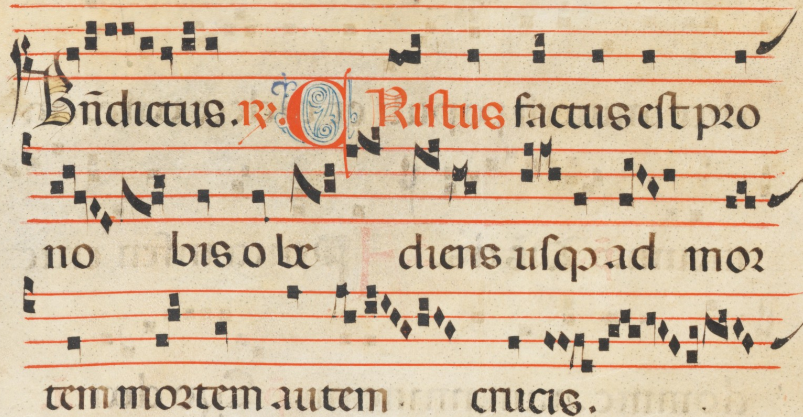 Bn̄dictus. ℟. CRistus factus est pro
no bis o be diens usqꝫ ad mor
tem mortem autem crucis.